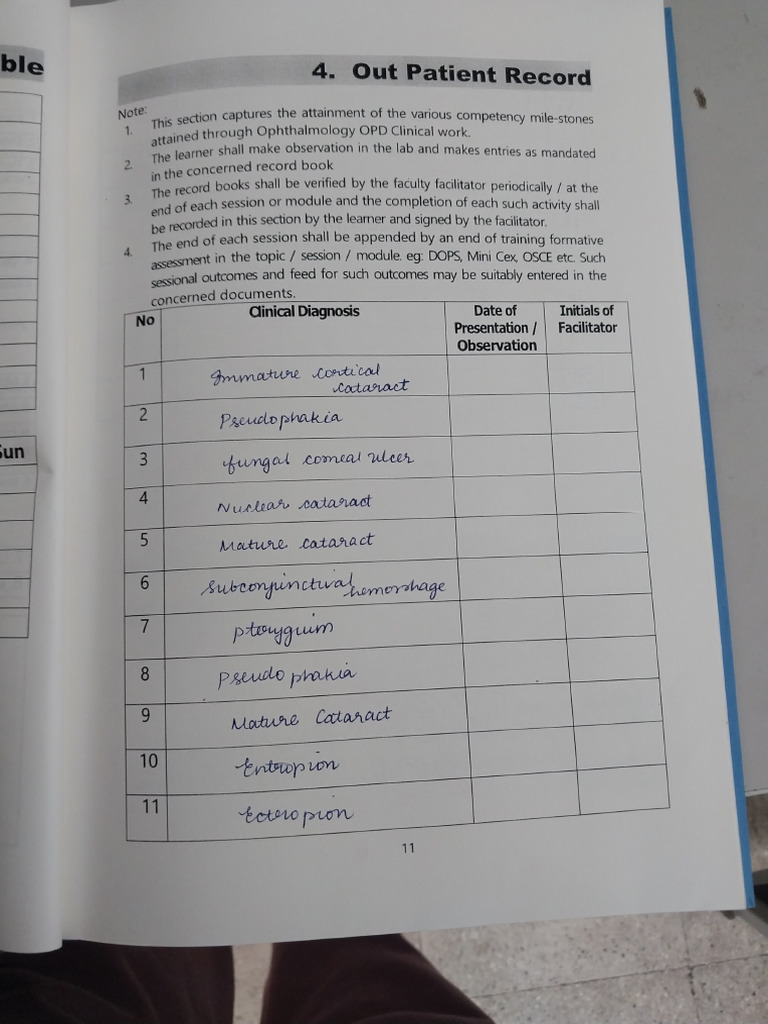 ble
4. Out Patient Record
Note:
1. This section captures the attainment of the various competency mile-stones
attained through Ophthalmology OPD Clinical work.
2. The learner shall make observation in the lab and makes entries as mandated
in the concerned record book
3. The record books shall be verified by the faculty facilitator periodically / at the
end of each session or module and the completion of each such activity shall
be recorded in this section by the learner and signed by the facilitator.
4. The end of each session shall be appended by an end of training formative
assessment in the topic / session / module. eg: DOPS, Mini Cex, OSCE etc. Such
sessional outcomes and feed for such outcomes may be suitably entered in the
concerned documents.
No Clinical Diagnosis Date of Presentation / Observation Initials of Facilitator
1 Immature cortical
cataract
2 Pseudophakia
3 fungal corneal ulcer
Sun
4 Nuclear cataract
5 Mature cataract
6 Subconjunctival hemorrhage
7 pterygium
8 Pseudophakia
9 Mature Cataract
10 Entropion
11 Ecteropion
11